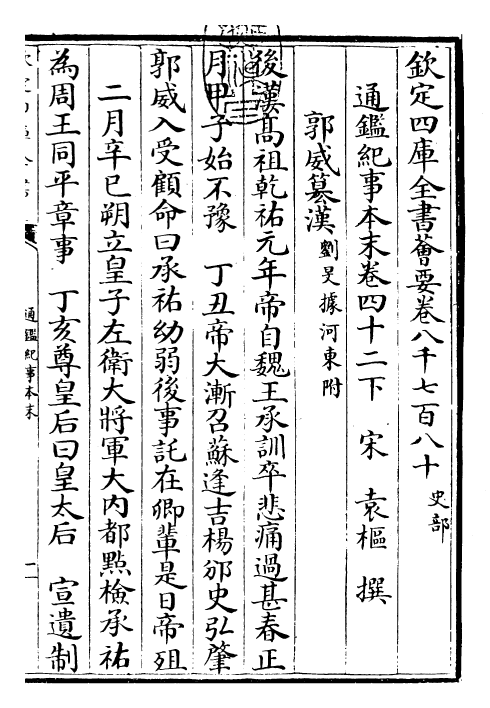 欽定四庫全書薈要卷八千七百八十 史部
通鑑紀事本末卷四十二下 宋 袁樞 撰
郭威篡漢 劉旻據河東附
後漢高祖乾祐元年帝自魏王承訓卒悲痛過甚春正
月甲子始不豫 丁丑帝大漸召蘇逢吉楊邠史弘肇
郭威入受顧命曰承祐幼弱後事託在卿輩是日帝殂
二月辛巳朔立皇子左衛大將軍大內都點檢承祐
為周王同平章事 丁亥尊皇后曰皇太后 宣遺制
通鑑紀事本末